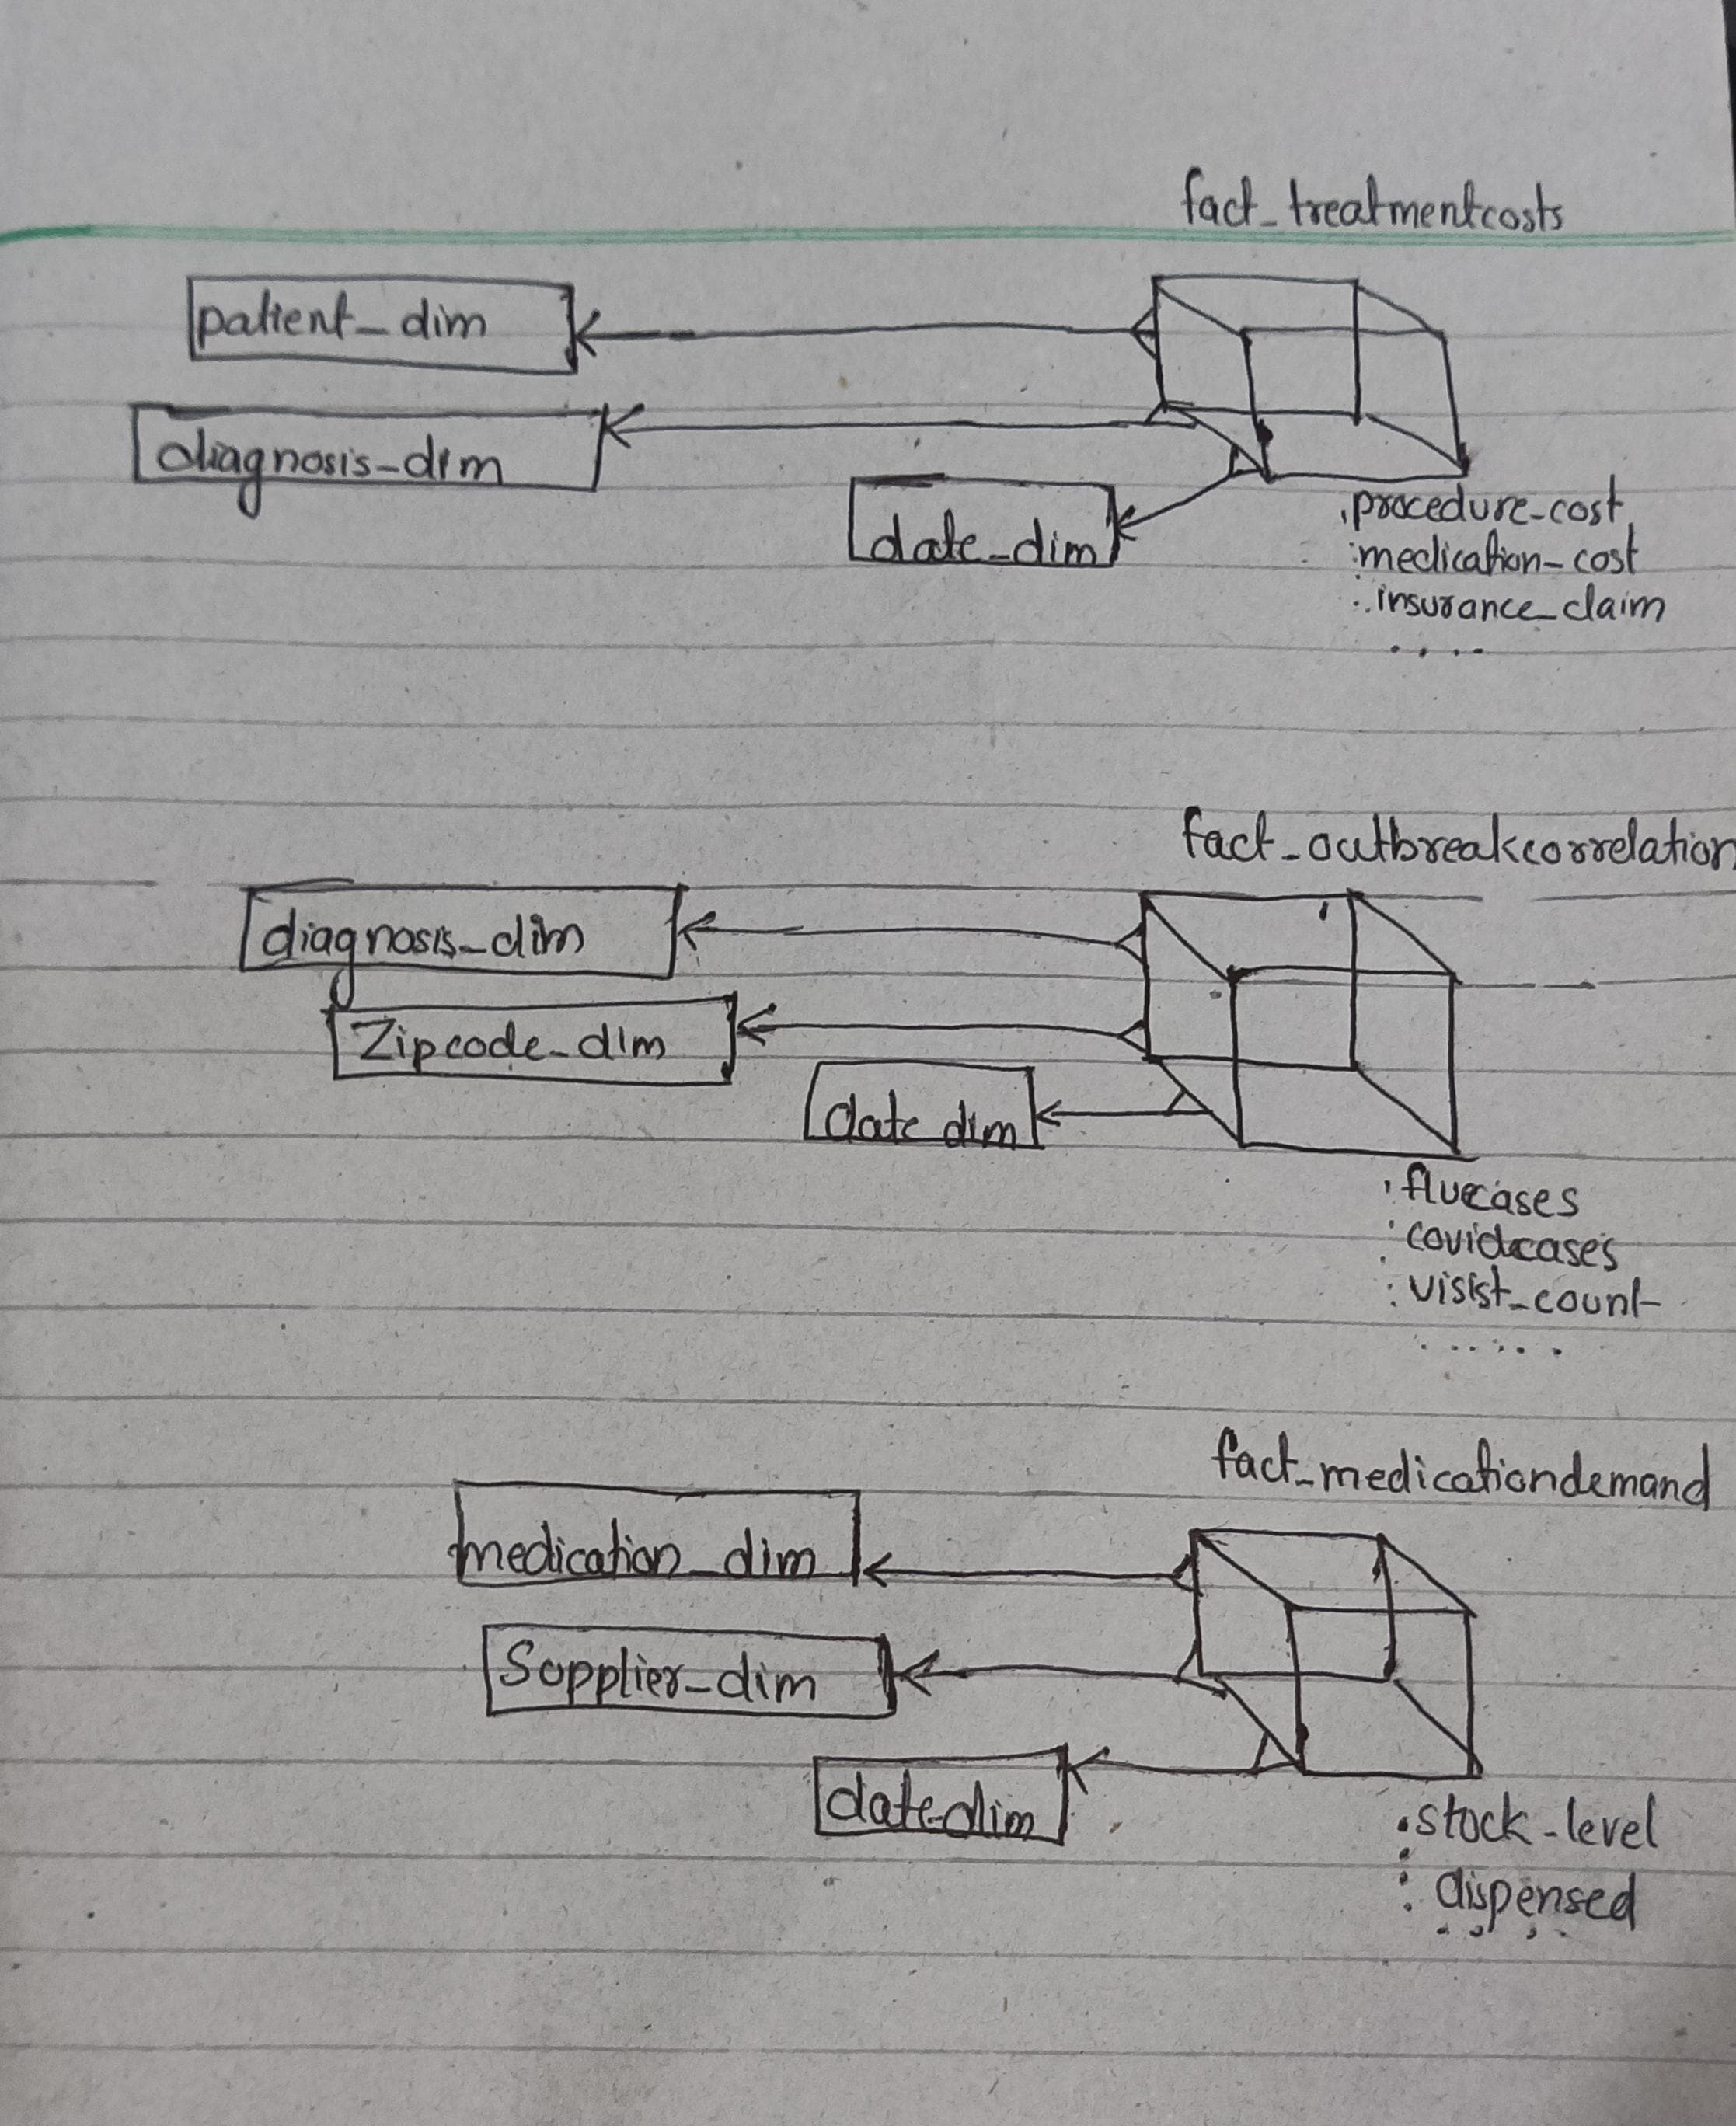 fact_treatmentcosts
patient_dim
diagnosis_dim
date_dim
procedure_cost
medication_cost
insurance_claim
fact_outbreakcorrelation
diagnosis_dim
Zipcode_dim
date dim
flucases
covidcases
visist_count
fact_medicationdemand
medication_dim
Supplier_dim
date_dim
stock_level
dispensed